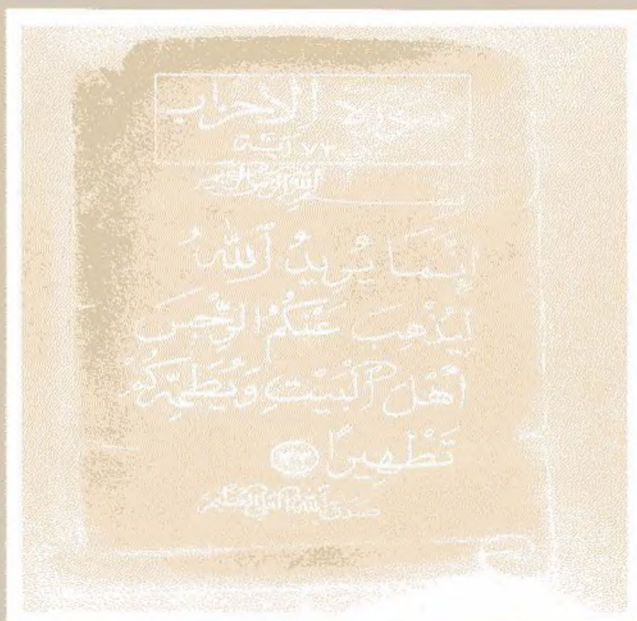 سورة الأحزاب
٧٣ آية
بسم الله الرحمن الرحيم
إِنَّمَا يُرِيدُ ٱللَّهُ
لِيُذْهِبَ عَنكُمُ الرِّجْسَ
أَهْلَ ٱلْبَيْتِ وَيُطَهِّرَكُمْ
تَطْهِيرًا ٣٣
صدق الله العلي العظيم